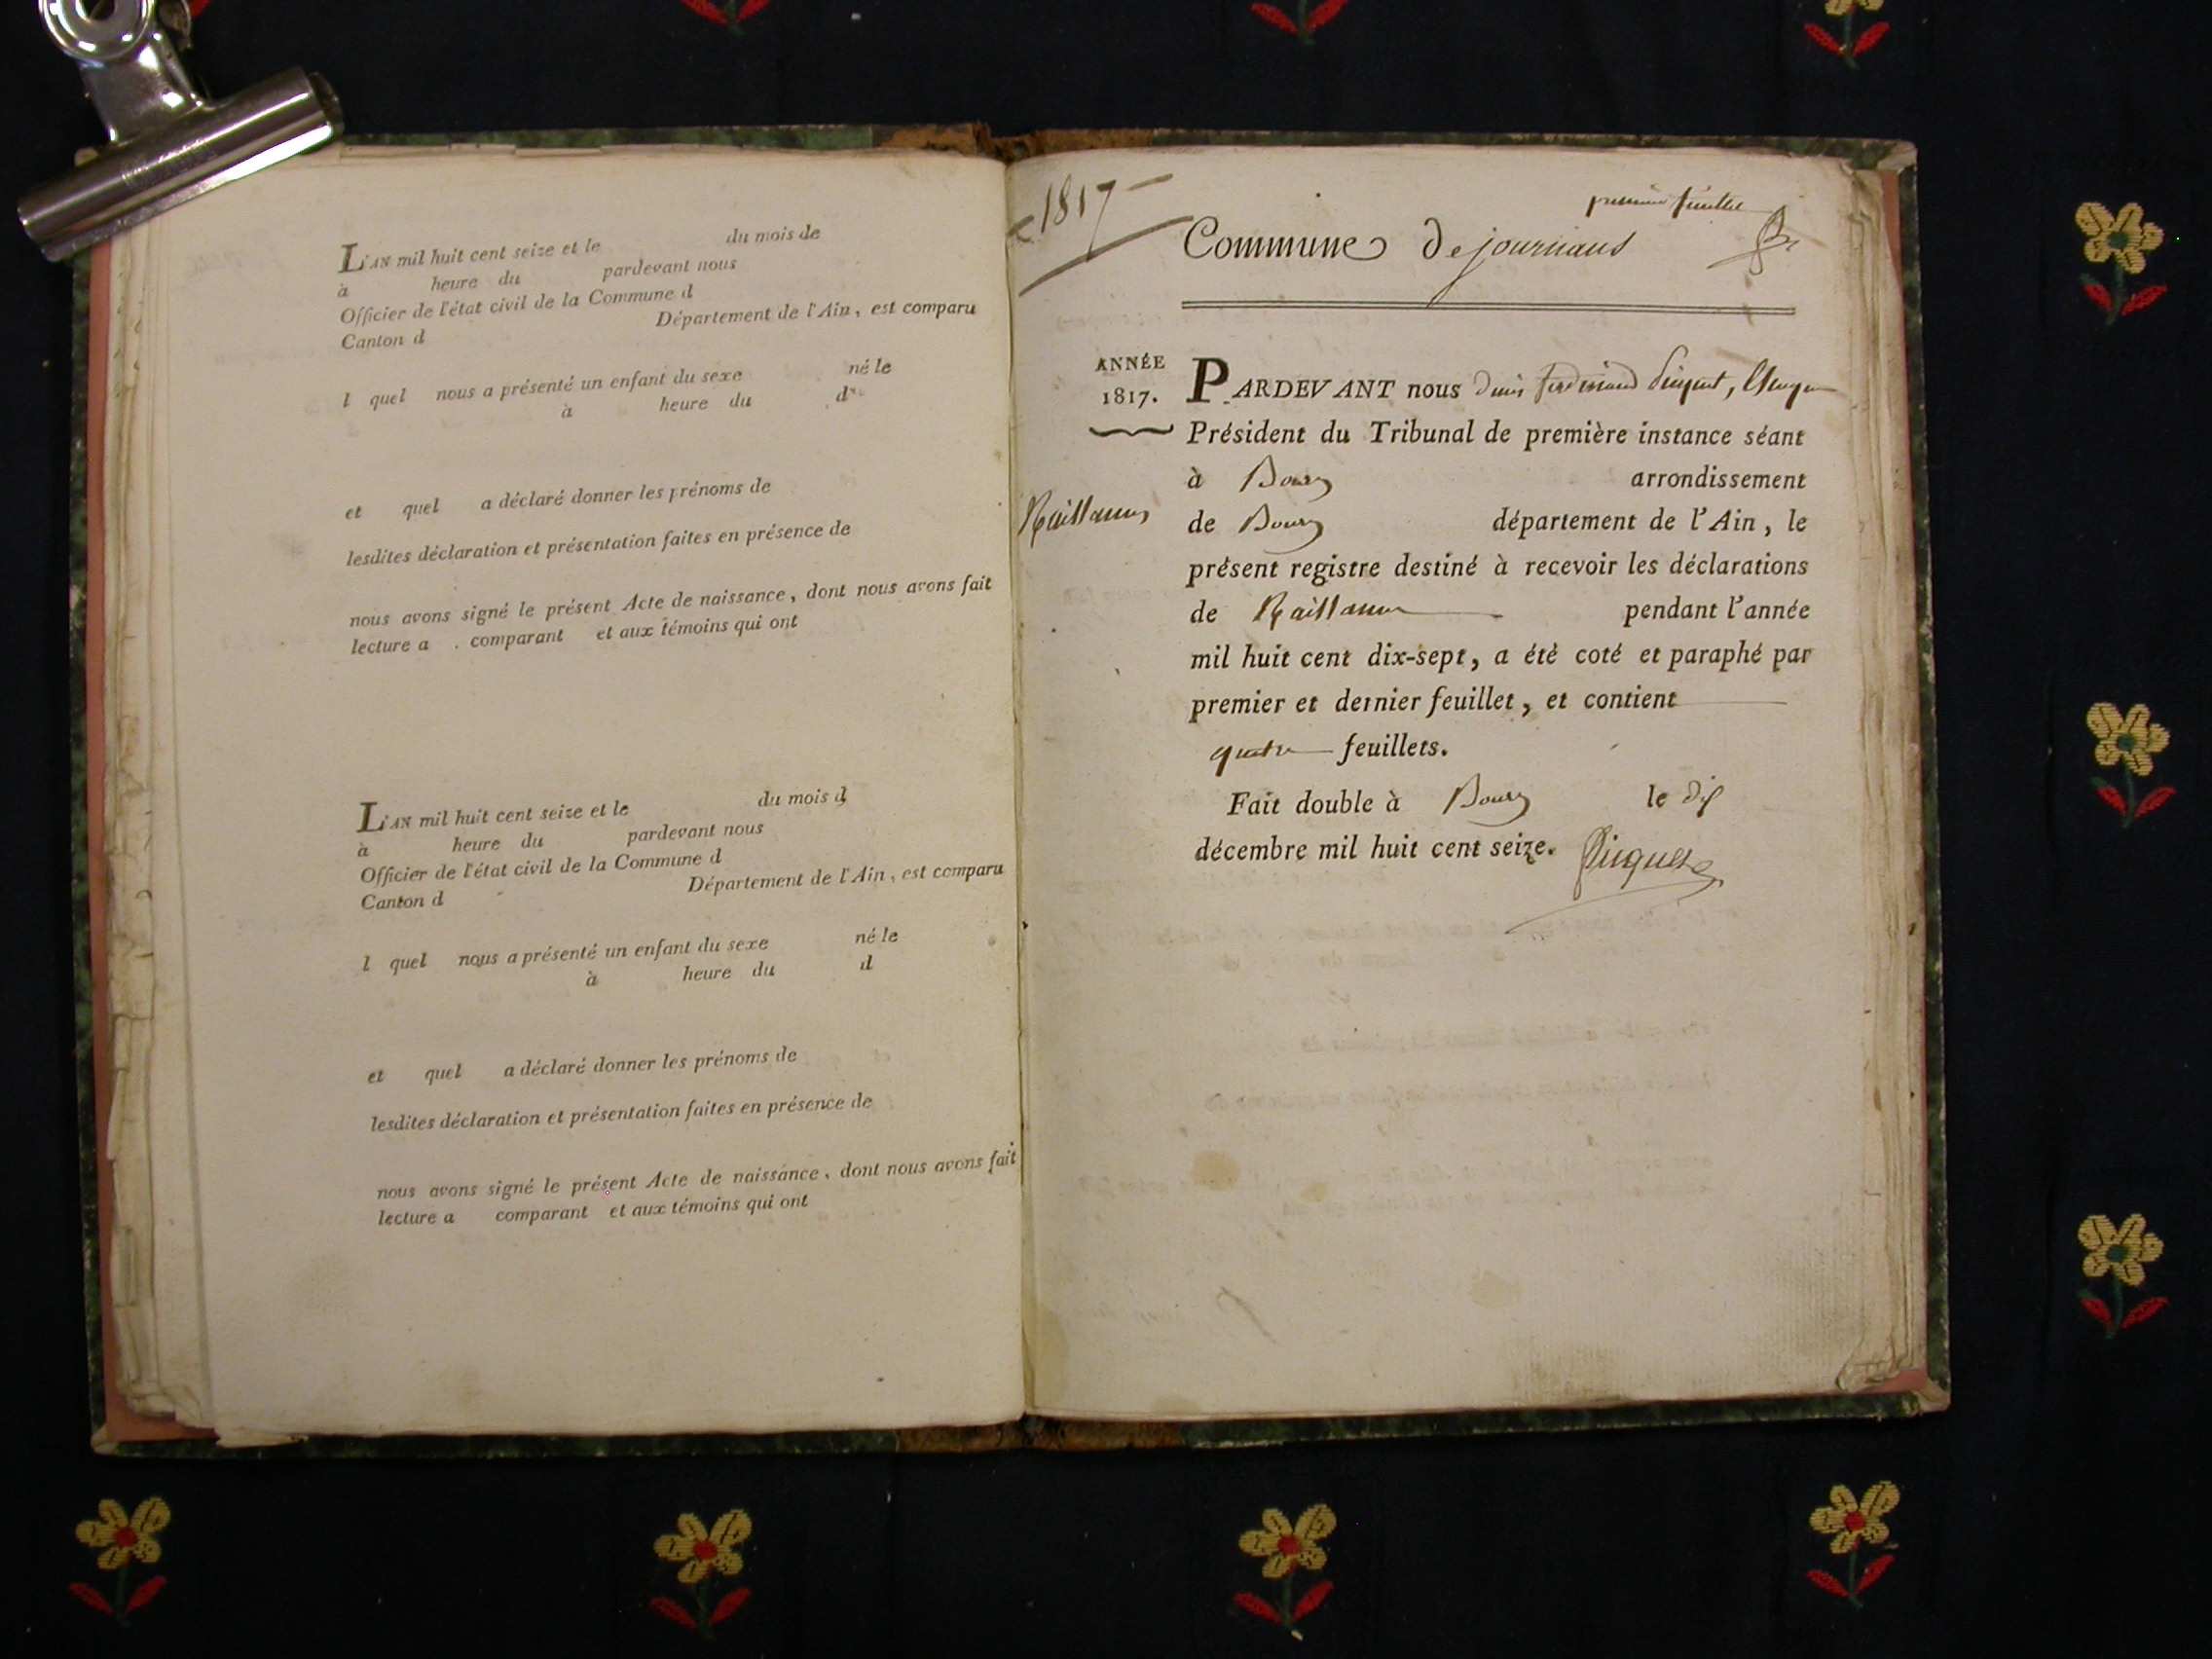 L'AN mil huit cent seize et le du mois de
à heure du pardevant nous
Officier de l'état civil de la Commune d
Canton d Département de l'Ain, est comparu
l quel nous a présenté un enfant du sexe né le
à heure du d
et quel a déclaré donner les prénoms de
lesdites déclaration et présentation faites en présence de
nous avons signé le présent Acte de naissance, dont nous avons fait
lecture a comparant et aux témoins qui ont
L'AN mil huit cent seize et le du mois d
à heure du pardevant nous
Officier de l'état civil de la Commune d
Canton d Département de l'Ain, est comparu
l quel nous a présenté un enfant du sexe né le
à heure du d
et quel a déclaré donner les prénoms de
lesdites déclaration et présentation faites en présence de
nous avons signé le présent Acte de naissance, dont nous avons fait
lecture a comparant et aux témoins qui ont
1817
premier feuillet
Commune de journans
ANNÉE
1817.
PARDEVANT nous ferdinand
Président du Tribunal de première instance séant
à Bourg arrondissement
de Bourg département de l'Ain, le
présent registre destiné à recevoir les déclarations
de Naissances pendant l'année
Naissances
mil huit cent dix-sept, a été coté et paraphé par
premier et dernier feuillet, et contient
quatre feuillets.
Fait double à Bourg le dix
décembre mil huit cent seize.